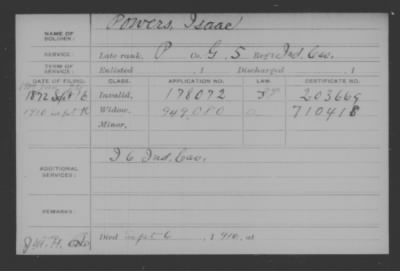 NAME OF SOLDIER: Powers, Isaac
SERVICE: Late rank, P Co. G, 5 Reg't Ind. Cav.
TERM OF SERVICE: Enlisted , 1 Discharged , 1
DATE OF FILING. CLASS. APPLICATION NO. LAW. CERTIFICATE NO.
1872 Sept 6 Invalid, 178072 203669
1910 Sept Widow, 949 710418
Minor,
ADDITIONAL SERVICES: I 6 Ind. Cav.
REMARKS:
Died Sept 6, 1910, at